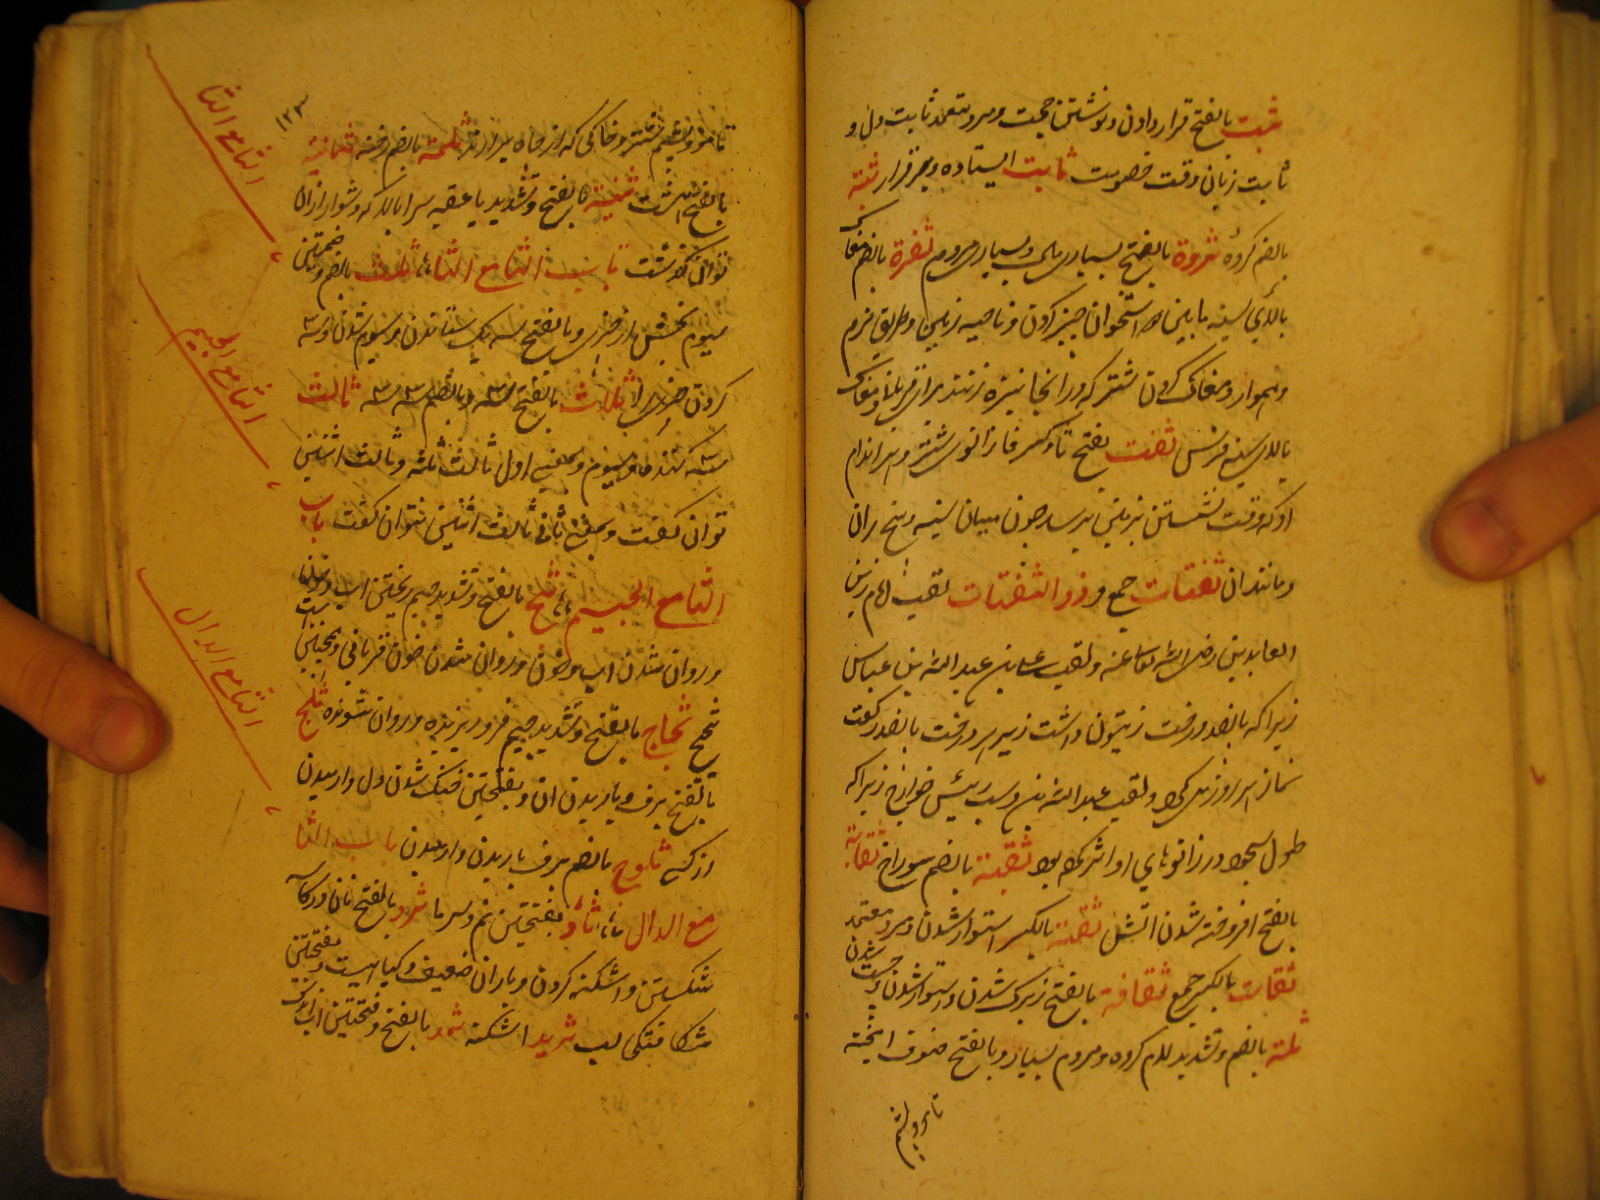 ثبت بالفتح قرار دادن و نوشتن حجت و مرد معتمد ثابت دل و
ثابت زبان وقت خصومت ثابت ایستاده و برقرار ثبة
بالضم کروه ثروة بالفتح بسیاری مال و بسیاری مردم ثغرة بالضم مغاک
بالای سینه مابین دو استخوان چنبر کردن و ناحیه زمین و طریق نرم
و هموار و مغاک کردن شتر که در انجا نیزه زنند
بالای سینه فرس ثفنت بفتح ثا و کسر فا زانوی شتر و هر اندام
او که وقت نشستن بزمین برسد چون میان سینه و بیخ ران
و مانند ان ثفنات جمع و ذو الثفنات لقب امام زین
العابدین رضی الله تعالی عنه و لقب علی بن عبد الله بن عباس
زیرا که پانصد درخت زیتون داشت زیر هر درخت پانصد رکعت
نماز هر روز می کرد و لقب عبد الله بن وهب رئیس خوارج زیرا که
طول سجود در زانوهای او اثر کرده بود ثقبة بالضم سوراخ ثقابة
بالفتح افروخته شدن اتش ثقة بالکسر استوار شدن و مرد معتمد
ثقات بالکسر جمع ثقافة بالفتح زیرک شدن و استوار شدن و چست شدن
ثلة بالضم و تشدید لام کروه مردم بسیار و بالفتح صوف
تا مو و پشم
۱۲۳
تا مو و پشم شتر و خاکی که از چاه بر ارند ثلمة بالضم رخنه ثمانیة
بالفتح هشت ثنیة بالفتح و تشدید یا عقبه سر بالا که دشوار ازان
توان گذشت باب الثا مع الثا ثلث بالضم و بضمتین
سیوم بخش از چیزی و بالفتح سه یک ستاندن و سیوم شدن و سه
کردن چیزی را ثلاث بالفتح سه و بالضم سه سه ثالث
سه کننده و سیوم و بمعنی اول ثالث ثلثه و ثالث اثنین
توان گفت و بمعنی ثانی ثالث اثنین نتوان گفت باب
الثا مع الجیم ثج بالفتح و تشدید جیم ریختن اب و سیلاب
و روان شدن اب و خون و روان شدن خون قربانی و همچنین
ثجیج ثجاج بالفتح و تشدید جیم فرو ریزنده و روان شونده ثلج
بالفتح برف و باریدن ان و بفتحتین خنک شدن دل و ارمیدن
از کسی ثلوج بالضم برف باریدن و ارمیدن باب الثا
مع الدال ثأد بفتحتین نم و سرما ثرد بالفتح نان در کاسه
شکستن و اشکنه کردن و باران ضعیف و کیاهیست و بفتحتین
شکافتگی لب ثرید اشکنه ثمد بالفتح و فتحتین اب اندک
الثا مع الثا
الثا مع الجیم
الثا مع الدال